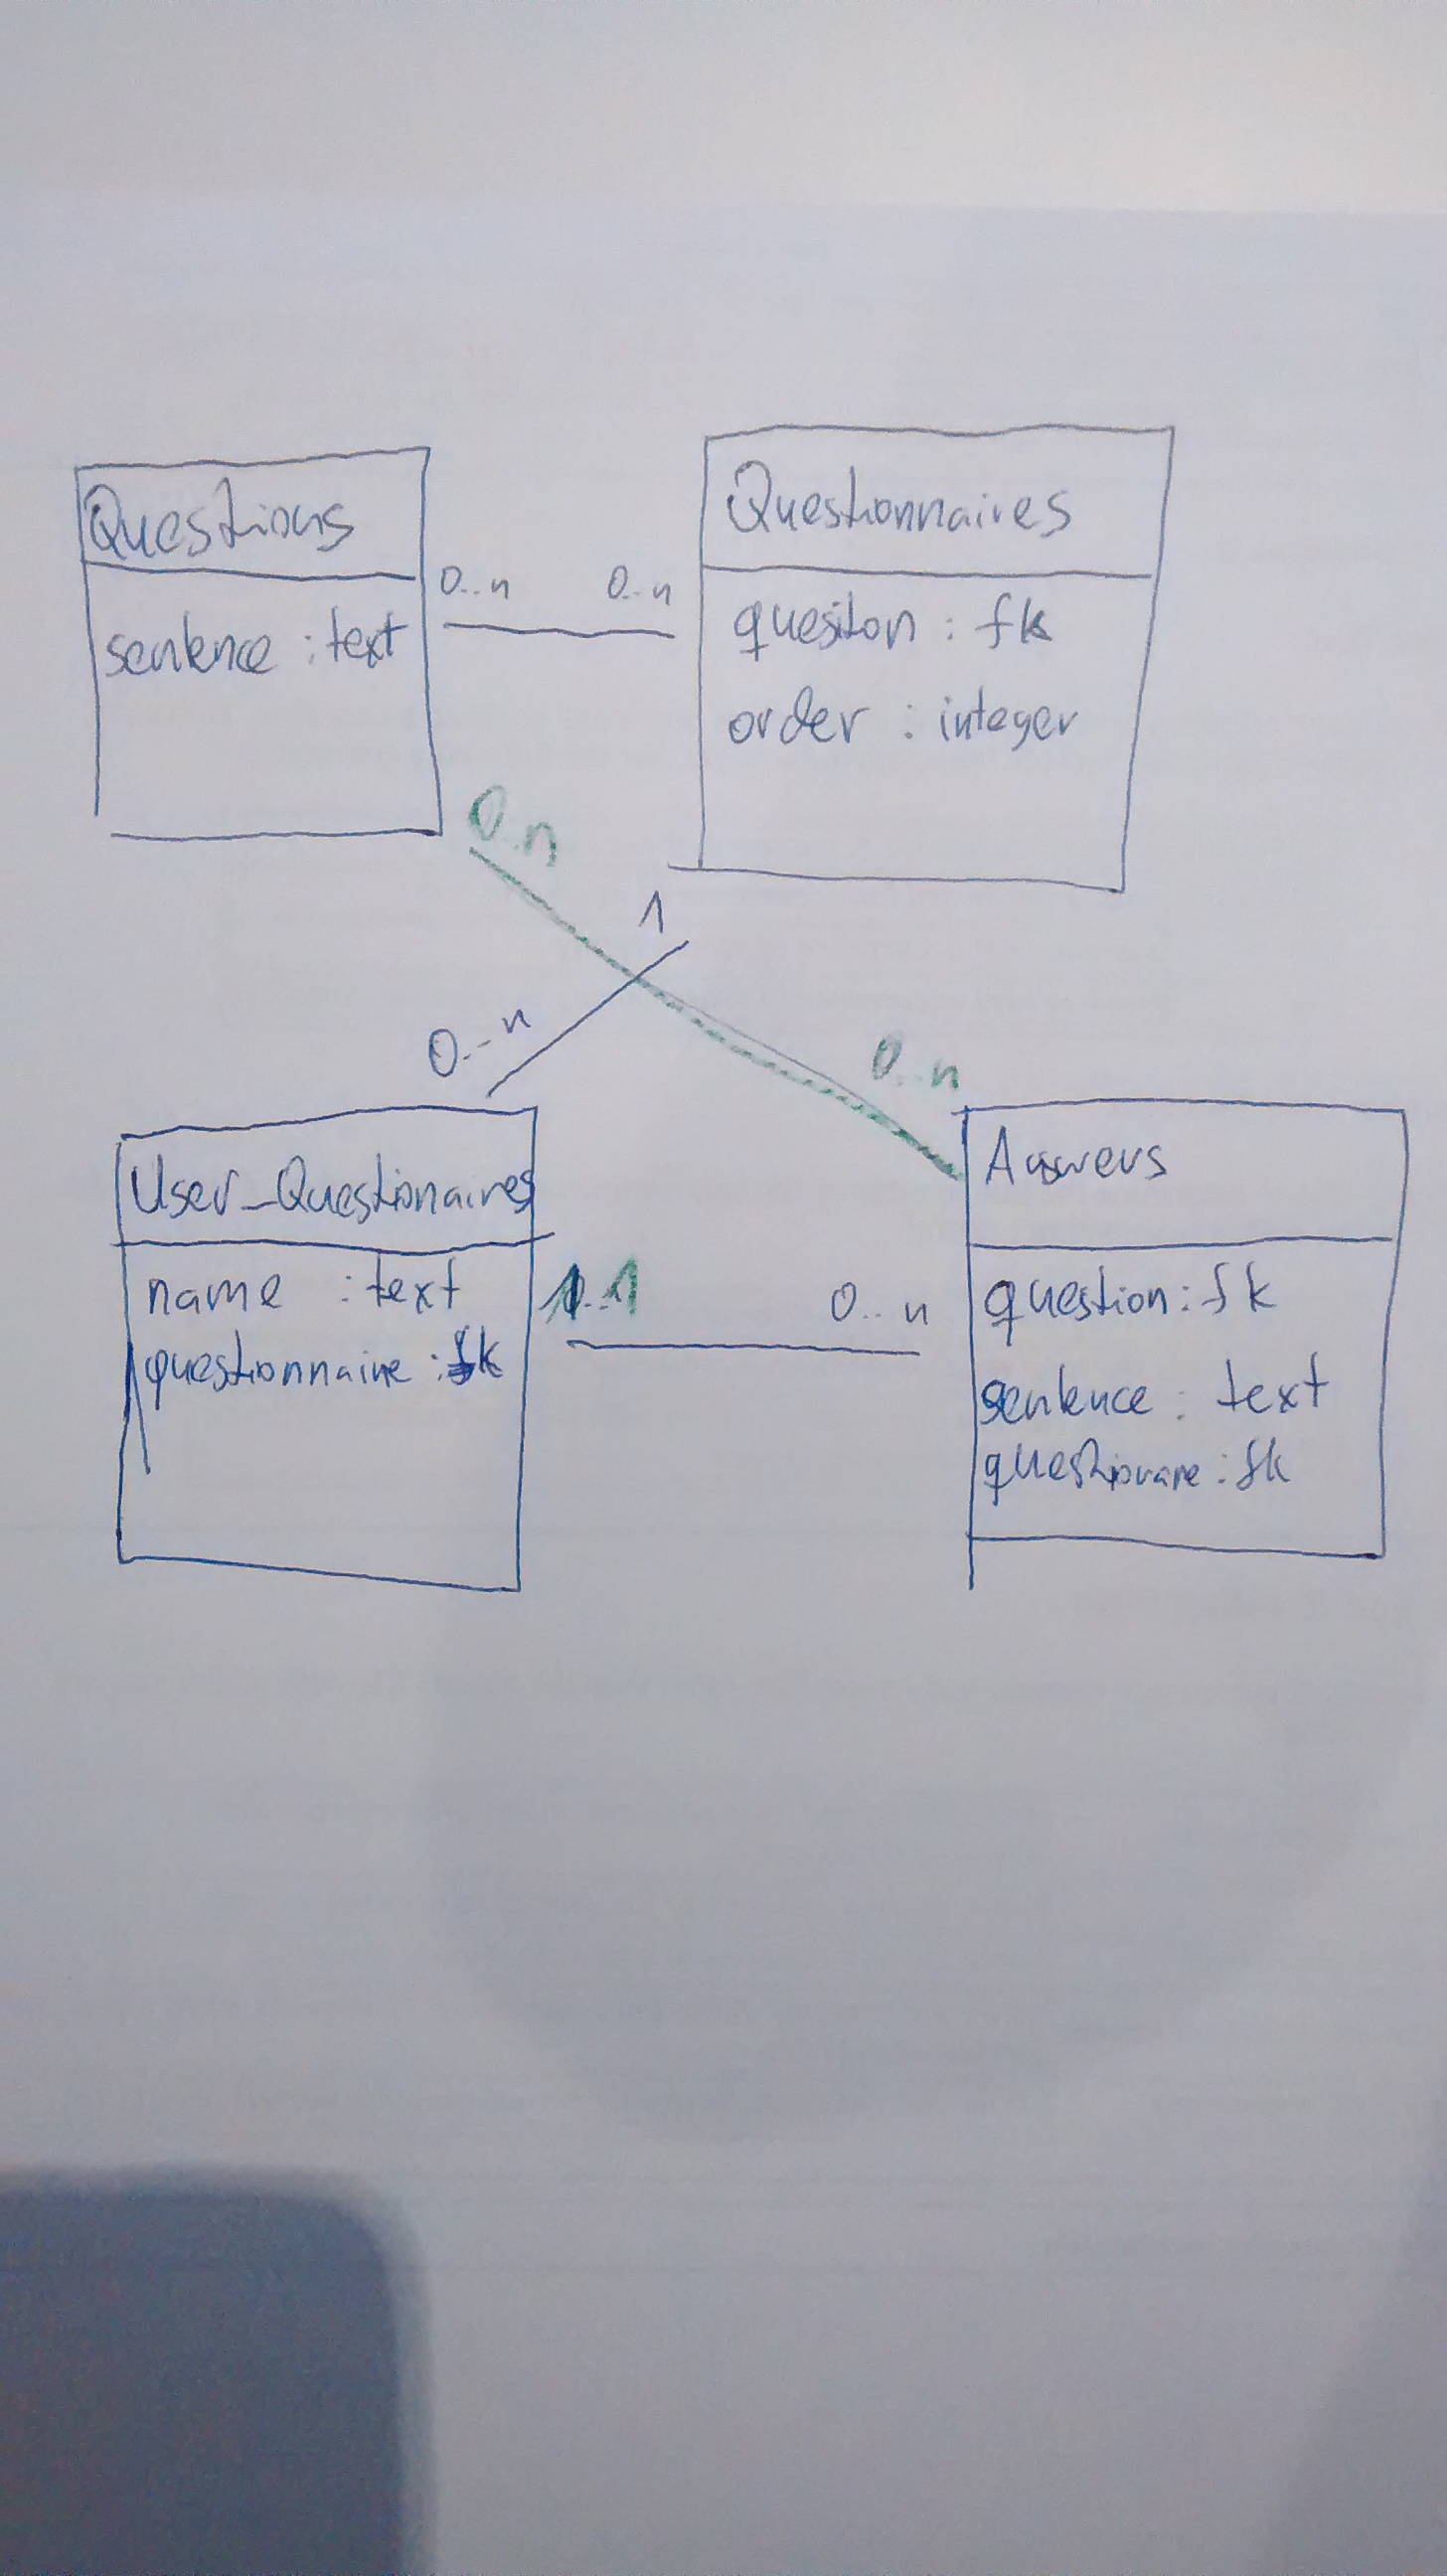 Questions
sentence : text
0..n 0..n
Questionnaires
quesiton : fk
order : integer
0..n
1
0..n
0..n
User_Questionaires
name : text
questionnaire : fk
1..1 0..n
Answers
question : fk
sentence : text
: fk